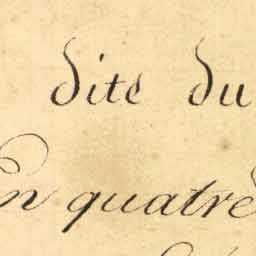 dite du
En quatre